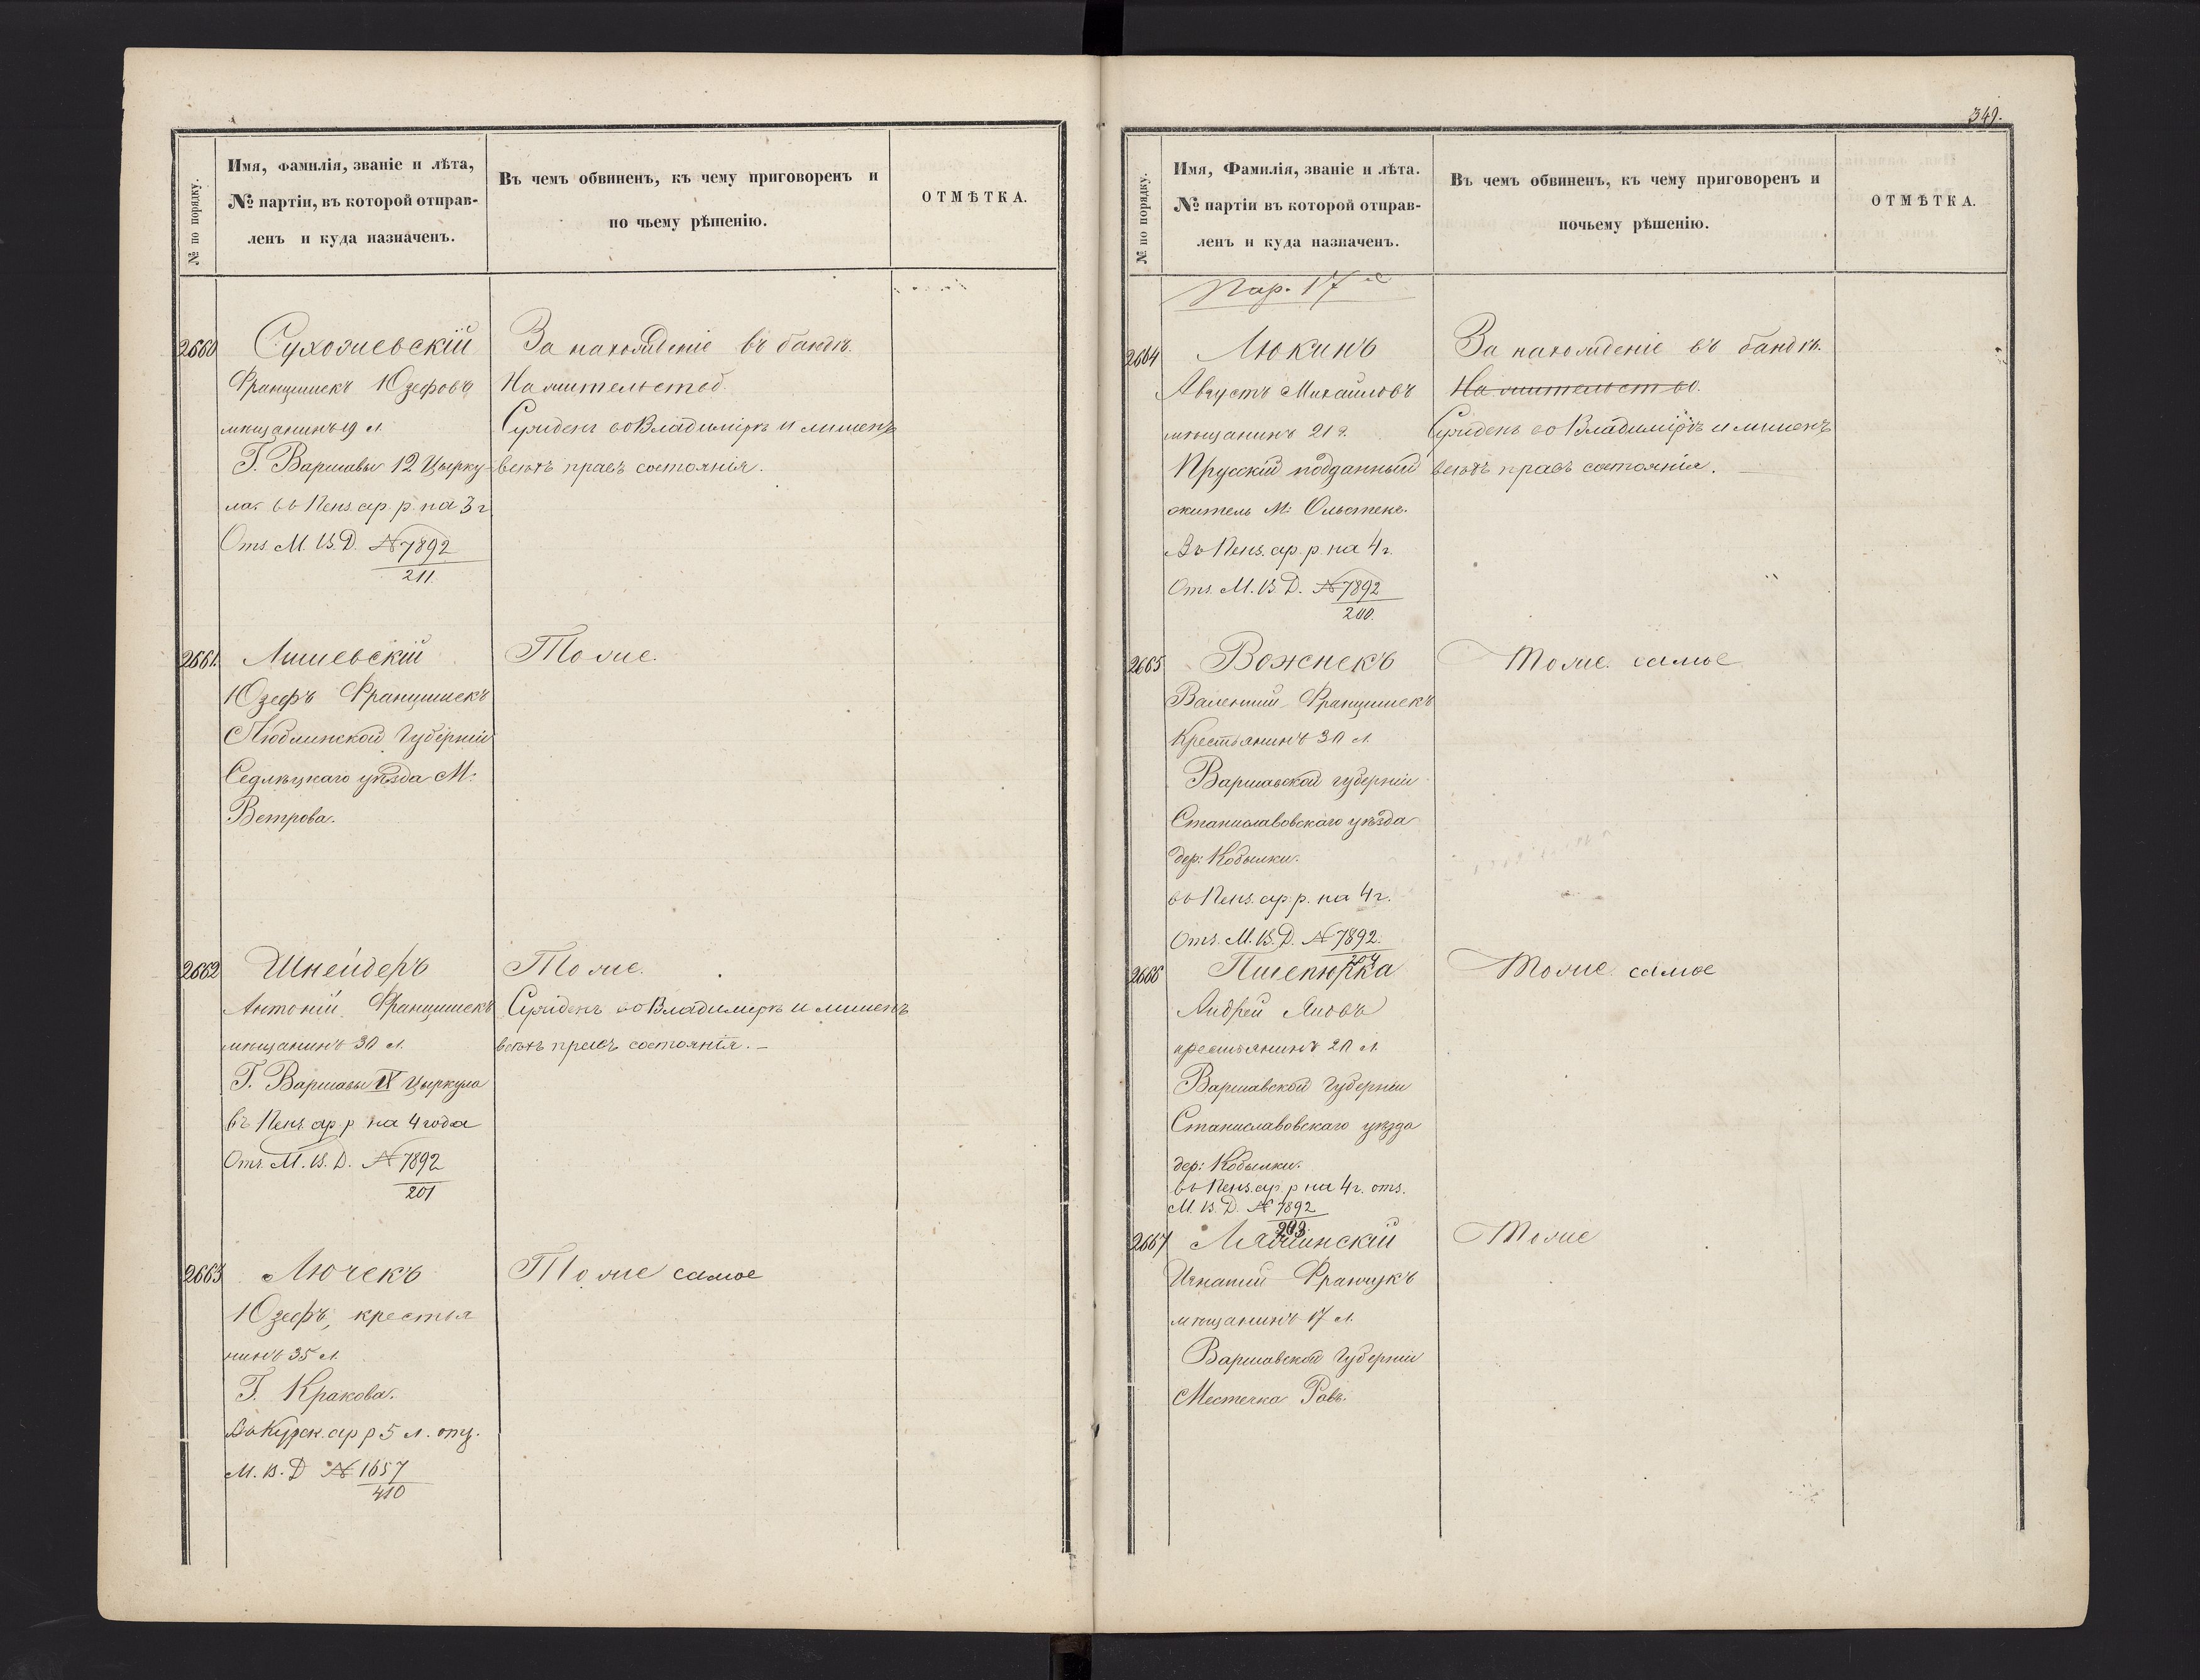 № по порядку.
Имя, Фамилія, званіе и лѣта,
№ партіи, въ которой отправ-
ленъ и куда назначенъ.
Въ чемъ обвиненъ, къ чему приговоренъ и
по чьему рѣшенію.
ОТМѢТКА.
2660
Сухожевскій
Францишекъ Юзефовъ
мѣщанинъ 19 л.
Г. Варшавы 12 Цырку-
ла въ Пенз. ар. р. на 3 г
Отз. М. В. Д. № 7892
211
За нахожденіе въ бандѣ.
На жительство.
Сужденъ во Владимірѣ и лишенъ
всѣхъ правъ состоянія.
2661.
Лишевскій
Юзефъ Францишекъ
Люблинской Губерніи
Седлѣцкаго уѣзда М:
Ветрова.
Тоже.
2662
Шнейдеръ
Антоній Францишекъ
мѣщанинъ 30 л.
Г. Варшавы IX Цыркула
въ Пенз. ар. р на 4 года
Отз. М. В. Д. № 7892
201
Тоже.
Сужденъ во Владимірѣ и лишенъ
всѣхъ правъ состоянія. —
2663
Лючекъ
Юзефъ, крестья
нинъ 35 л.
Г. Кракова.
Въ Курск. ар р 5 л. отз.
М. В. Д № 1657
410
Тоже самое
349.
№ по порядку.
Имя, Фамилія, званіе и лѣта.
№ партіи въ которой отправ-
ленъ и куда назначенъ.
Въ чемъ обвиненъ, къ чему приговоренъ и
почьему рѣшенію.
ОТМѢТКА.
Пар. 17я
2664
Люкинъ
Августъ Михайловъ
мѣщанинъ 21 г.
Прусскій подданный
житель М: Ольстене.
Въ Пенз. ар. р. на 4 г.
Отз. М. В. Д. № 7892
200.
За нахожденіе въ бандѣ.
На жительство.
Сужденъ во Владимірѣ и лишенъ
всѣхъ правъ состоянія. —
2665
Вожнекъ
Валентій Францишекъ
Крестьянинъ 30 л.
Варшавской губерніи
Станиславовскаго уѣзда
дер: Кобылки.
въ Пенз. ар. р. на 4 г.
Отз. М. В. Д. № 7892.
204
Тоже самое
2666
Пшепюрка
Андрей Яновъ
крестьянинъ 20 л.
Варшавской Губерніи
Станиславовскаго уѣзда
дер: Кобылки.
въ Пенз. ар. р на 4 г. отз.
М. В. Д. № 7892
203.
Тоже самое
2667
Игнатій Францукъ
мѣщанинъ 17 л.
Варшавской Губерніи
Местечка Равъ.
Тоже